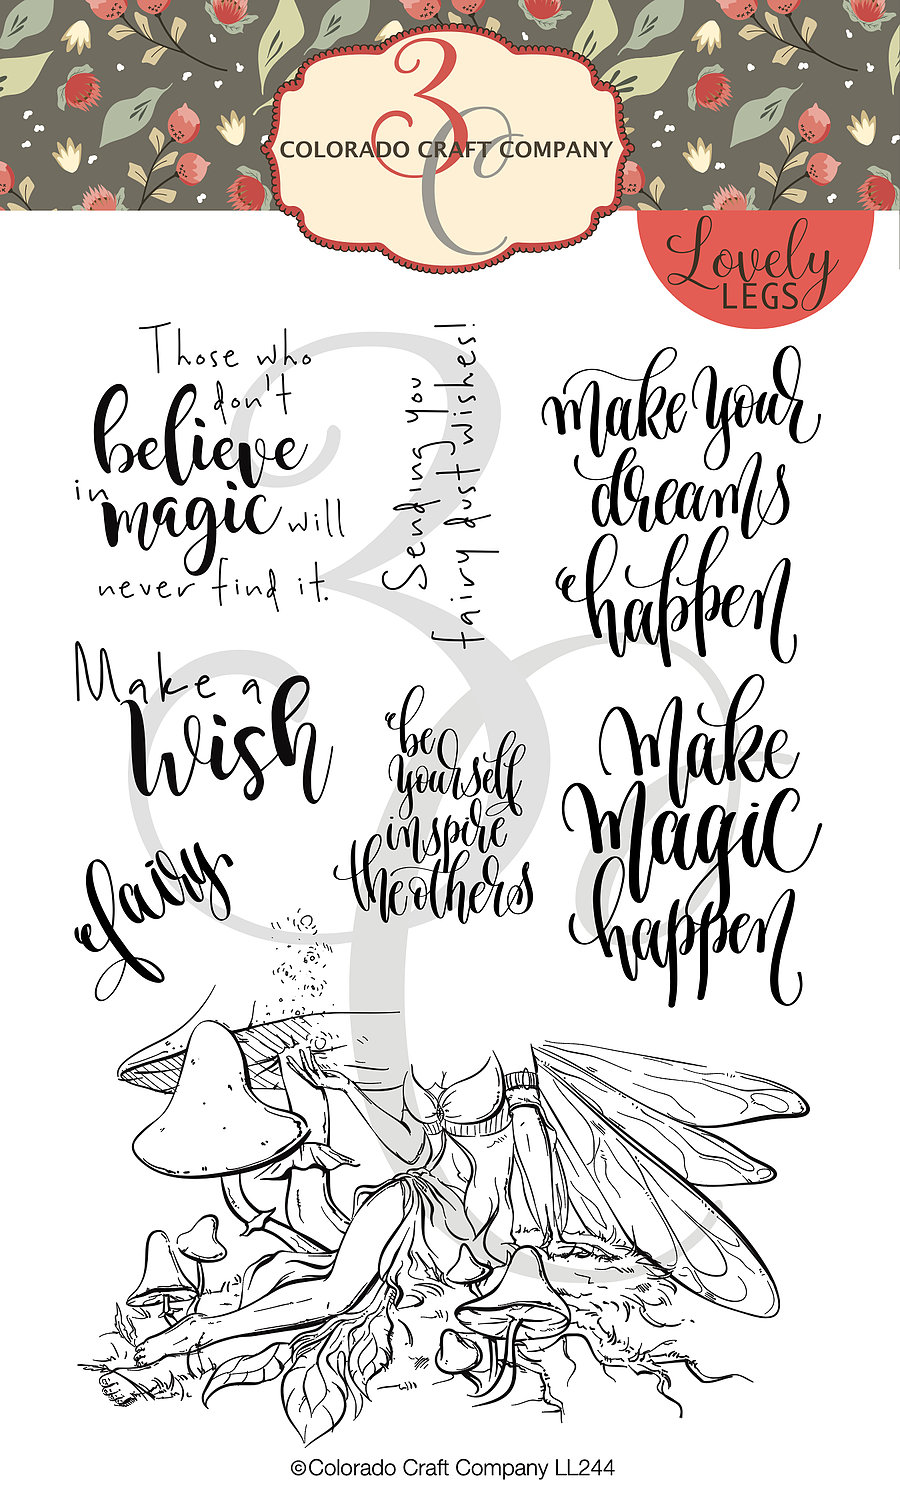 3C
COLORADO CRAFT COMPANY
Lovely
LEGS
Those who
don't
believe
in magic will
never find it.
Sending you
fairy dust wishes!
make your
dreams
happen
Make a
Wish
be
yourself
inspire
the others
Make
Magic
happen
fairy
3C
©Colorado Craft Company LL244